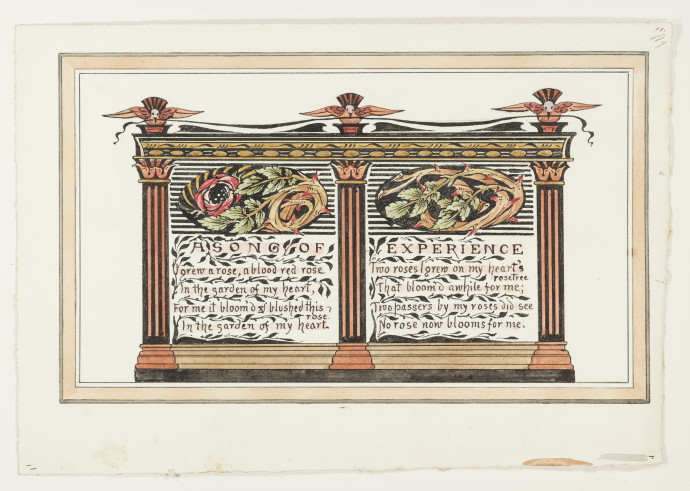 A SONG OF
I grew a rose, a blood red rose
In the garden of my heart,
For me it bloom'd & blushed this rose
In the garden of my heart.
EXPERIENCE
Two roses I grew on my heart's rosetree
That bloom'd awhile for me;
Two passers by my roses did see
No rose now blooms for me.